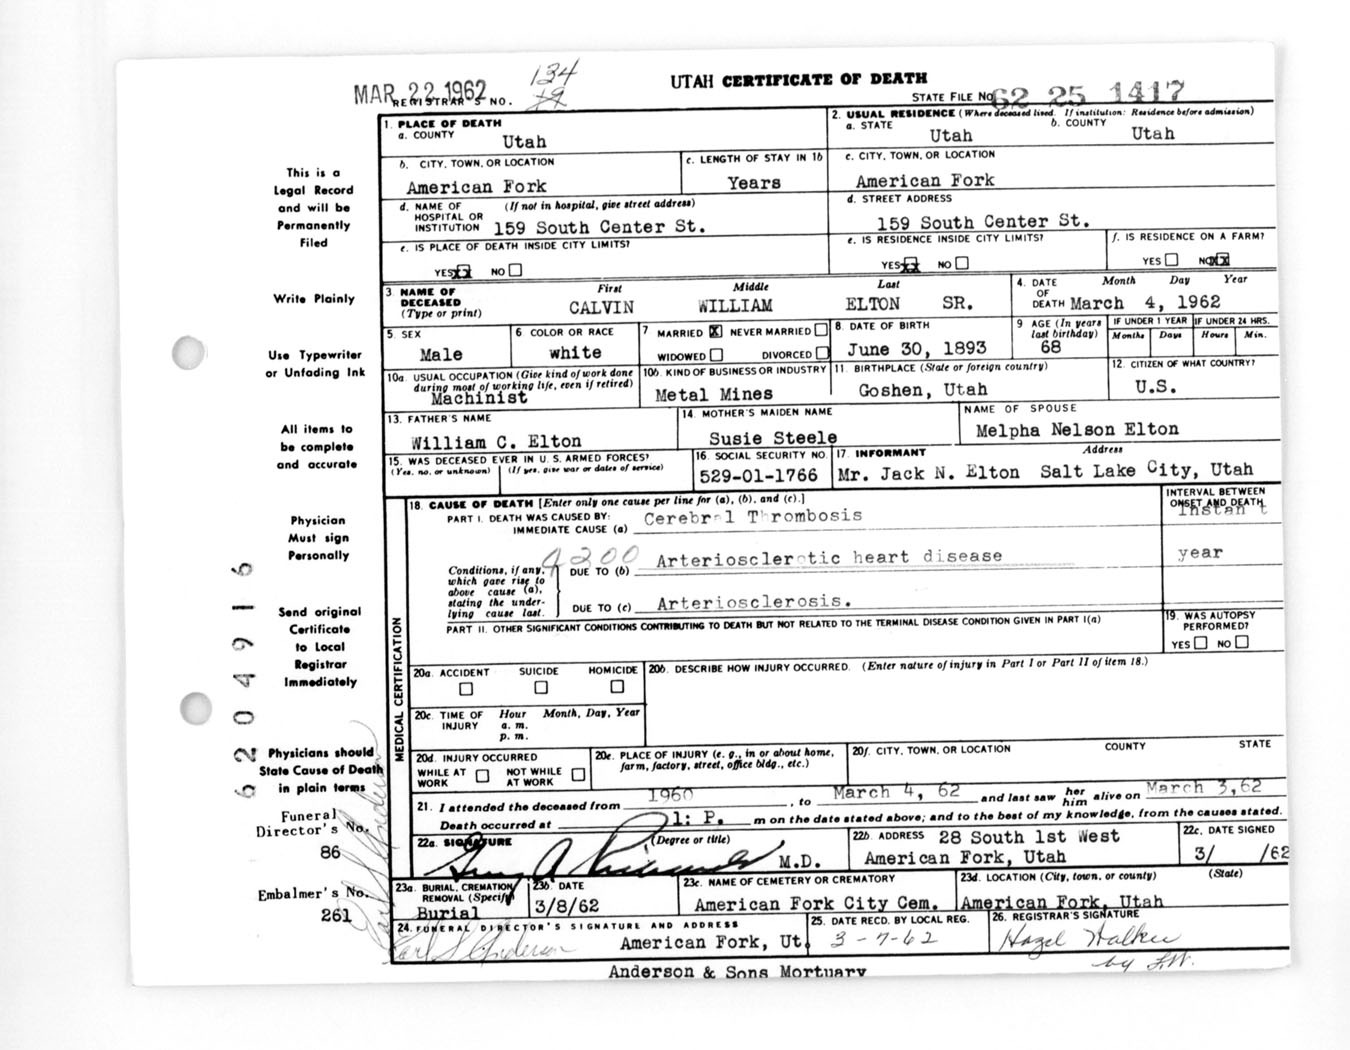 MAR 22 1962
134
19
UTAH CERTIFICATE OF DEATH
REGISTRAR'S NO.
STATE FILE NO. 62 25 1417
This is a
Legal Record
and will be
Permanently
Filed
Write Plainly
Use Typewriter
or Unfading Ink
All items to
be complete
and accurate
Physician
Must sign
Personally
Send original
Certificate
to Local
Registrar
Immediately
Physicians should
State Cause of Death
in plain terms
Funeral
Director's No.
86
Embalmer's No.
261
6204916
1. PLACE OF DEATH
a. COUNTY
Utah
2. USUAL RESIDENCE (Where deceased lived. If institution: Residence before admission)
a. STATE b. COUNTY
Utah Utah
b. CITY, TOWN, OR LOCATION
American Fork
c. LENGTH OF STAY IN 1b
Years
c. CITY, TOWN, OR LOCATION
American Fork
d. NAME OF (If not in hospital, give street address)
HOSPITAL OR
INSTITUTION 159 South Center St.
d. STREET ADDRESS
159 South Center St.
e. IS PLACE OF DEATH INSIDE CITY LIMITS?
YES XX NO
e. IS RESIDENCE INSIDE CITY LIMITS?
YES XX NO
f. IS RESIDENCE ON A FARM?
YES NO XX
3. NAME OF First Middle Last
DECEASED
(Type or print) CALVIN WILLIAM ELTON SR.
4. DATE Month Day Year
OF
DEATH March 4, 1962
5. SEX
Male
6. COLOR OR RACE
white
7. MARRIED X NEVER MARRIED
WIDOWED DIVORCED
8. DATE OF BIRTH
June 30, 1893
9. AGE (In years
last birthday)
68
IF UNDER 1 YEAR IF UNDER 24 HRS.
Months Days Hours Min.
10a. USUAL OCCUPATION (Give kind of work done
during most of working life, even if retired)
Machinist
10b. KIND OF BUSINESS OR INDUSTRY
Metal Mines
11. BIRTHPLACE (State or foreign country)
Goshen, Utah
12. CITIZEN OF WHAT COUNTRY?
U.S.
13. FATHER'S NAME
William C. Elton
14. MOTHER'S MAIDEN NAME
Susie Steele
NAME OF SPOUSE
Melpha Nelson Elton
15. WAS DECEASED EVER IN U. S. ARMED FORCES?
(Yes, no, or unknown) (If yes, give war or dates of service)
16. SOCIAL SECURITY NO.
529-01-1766
17. INFORMANT Address
Mr. Jack N. Elton Salt Lake City, Utah
MEDICAL CERTIFICATION
18. CAUSE OF DEATH [Enter only one cause per line for (a), (b), and (c).]
INTERVAL BETWEEN
ONSET AND DEATH
PART I. DEATH WAS CAUSED BY:
IMMEDIATE CAUSE (a) Cerebral Thrombosis Instant
4200
Conditions, if any,
which gave rise to
above cause (a),
stating the under-
lying cause last.
DUE TO (b) Arteriosclerotic heart disease year
DUE TO (c) Arteriosclerosis.
PART II. OTHER SIGNIFICANT CONDITIONS CONTRIBUTING TO DEATH BUT NOT RELATED TO THE TERMINAL DISEASE CONDITION GIVEN IN PART I(a)
19. WAS AUTOPSY
PERFORMED?
YES NO
20a. ACCIDENT SUICIDE HOMICIDE
20b. DESCRIBE HOW INJURY OCCURRED. (Enter nature of injury in Part I or Part II of item 18.)
20c. TIME OF Hour Month, Day, Year
INJURY a. m.
p. m.
20d. INJURY OCCURRED
WHILE AT NOT WHILE
WORK AT WORK
20e. PLACE OF INJURY (e. g., in or about home,
farm, factory, street, office bldg., etc.)
20f. CITY, TOWN, OR LOCATION COUNTY STATE
21. I attended the deceased from 1960, to March 4, 62 and last saw her him alive on March 3,62
Death occurred at 1: P. m on the date stated above; and to the best of my knowledge, from the causes stated.
22a. SIGNATURE (Degree or title)
M.D.
22b. ADDRESS 28 South 1st West
American Fork, Utah
22c. DATE SIGNED
3/ /62
23a. BURIAL, CREMATION
REMOVAL (Specify)
Burial
23b. DATE
3/8/62
23c. NAME OF CEMETERY OR CREMATORY
American Fork City Cem.
23d. LOCATION (City, town, or county) (State)
American Fork, Utah
24. FUNERAL DIRECTOR'S SIGNATURE AND ADDRESS
Earl S Anderson American Fork, Ut.
25. DATE RECD. BY LOCAL REG.
3-7-62
26. REGISTRAR'S SIGNATURE
Hazel Walker
by F.W.
Anderson & Sons Mortuary